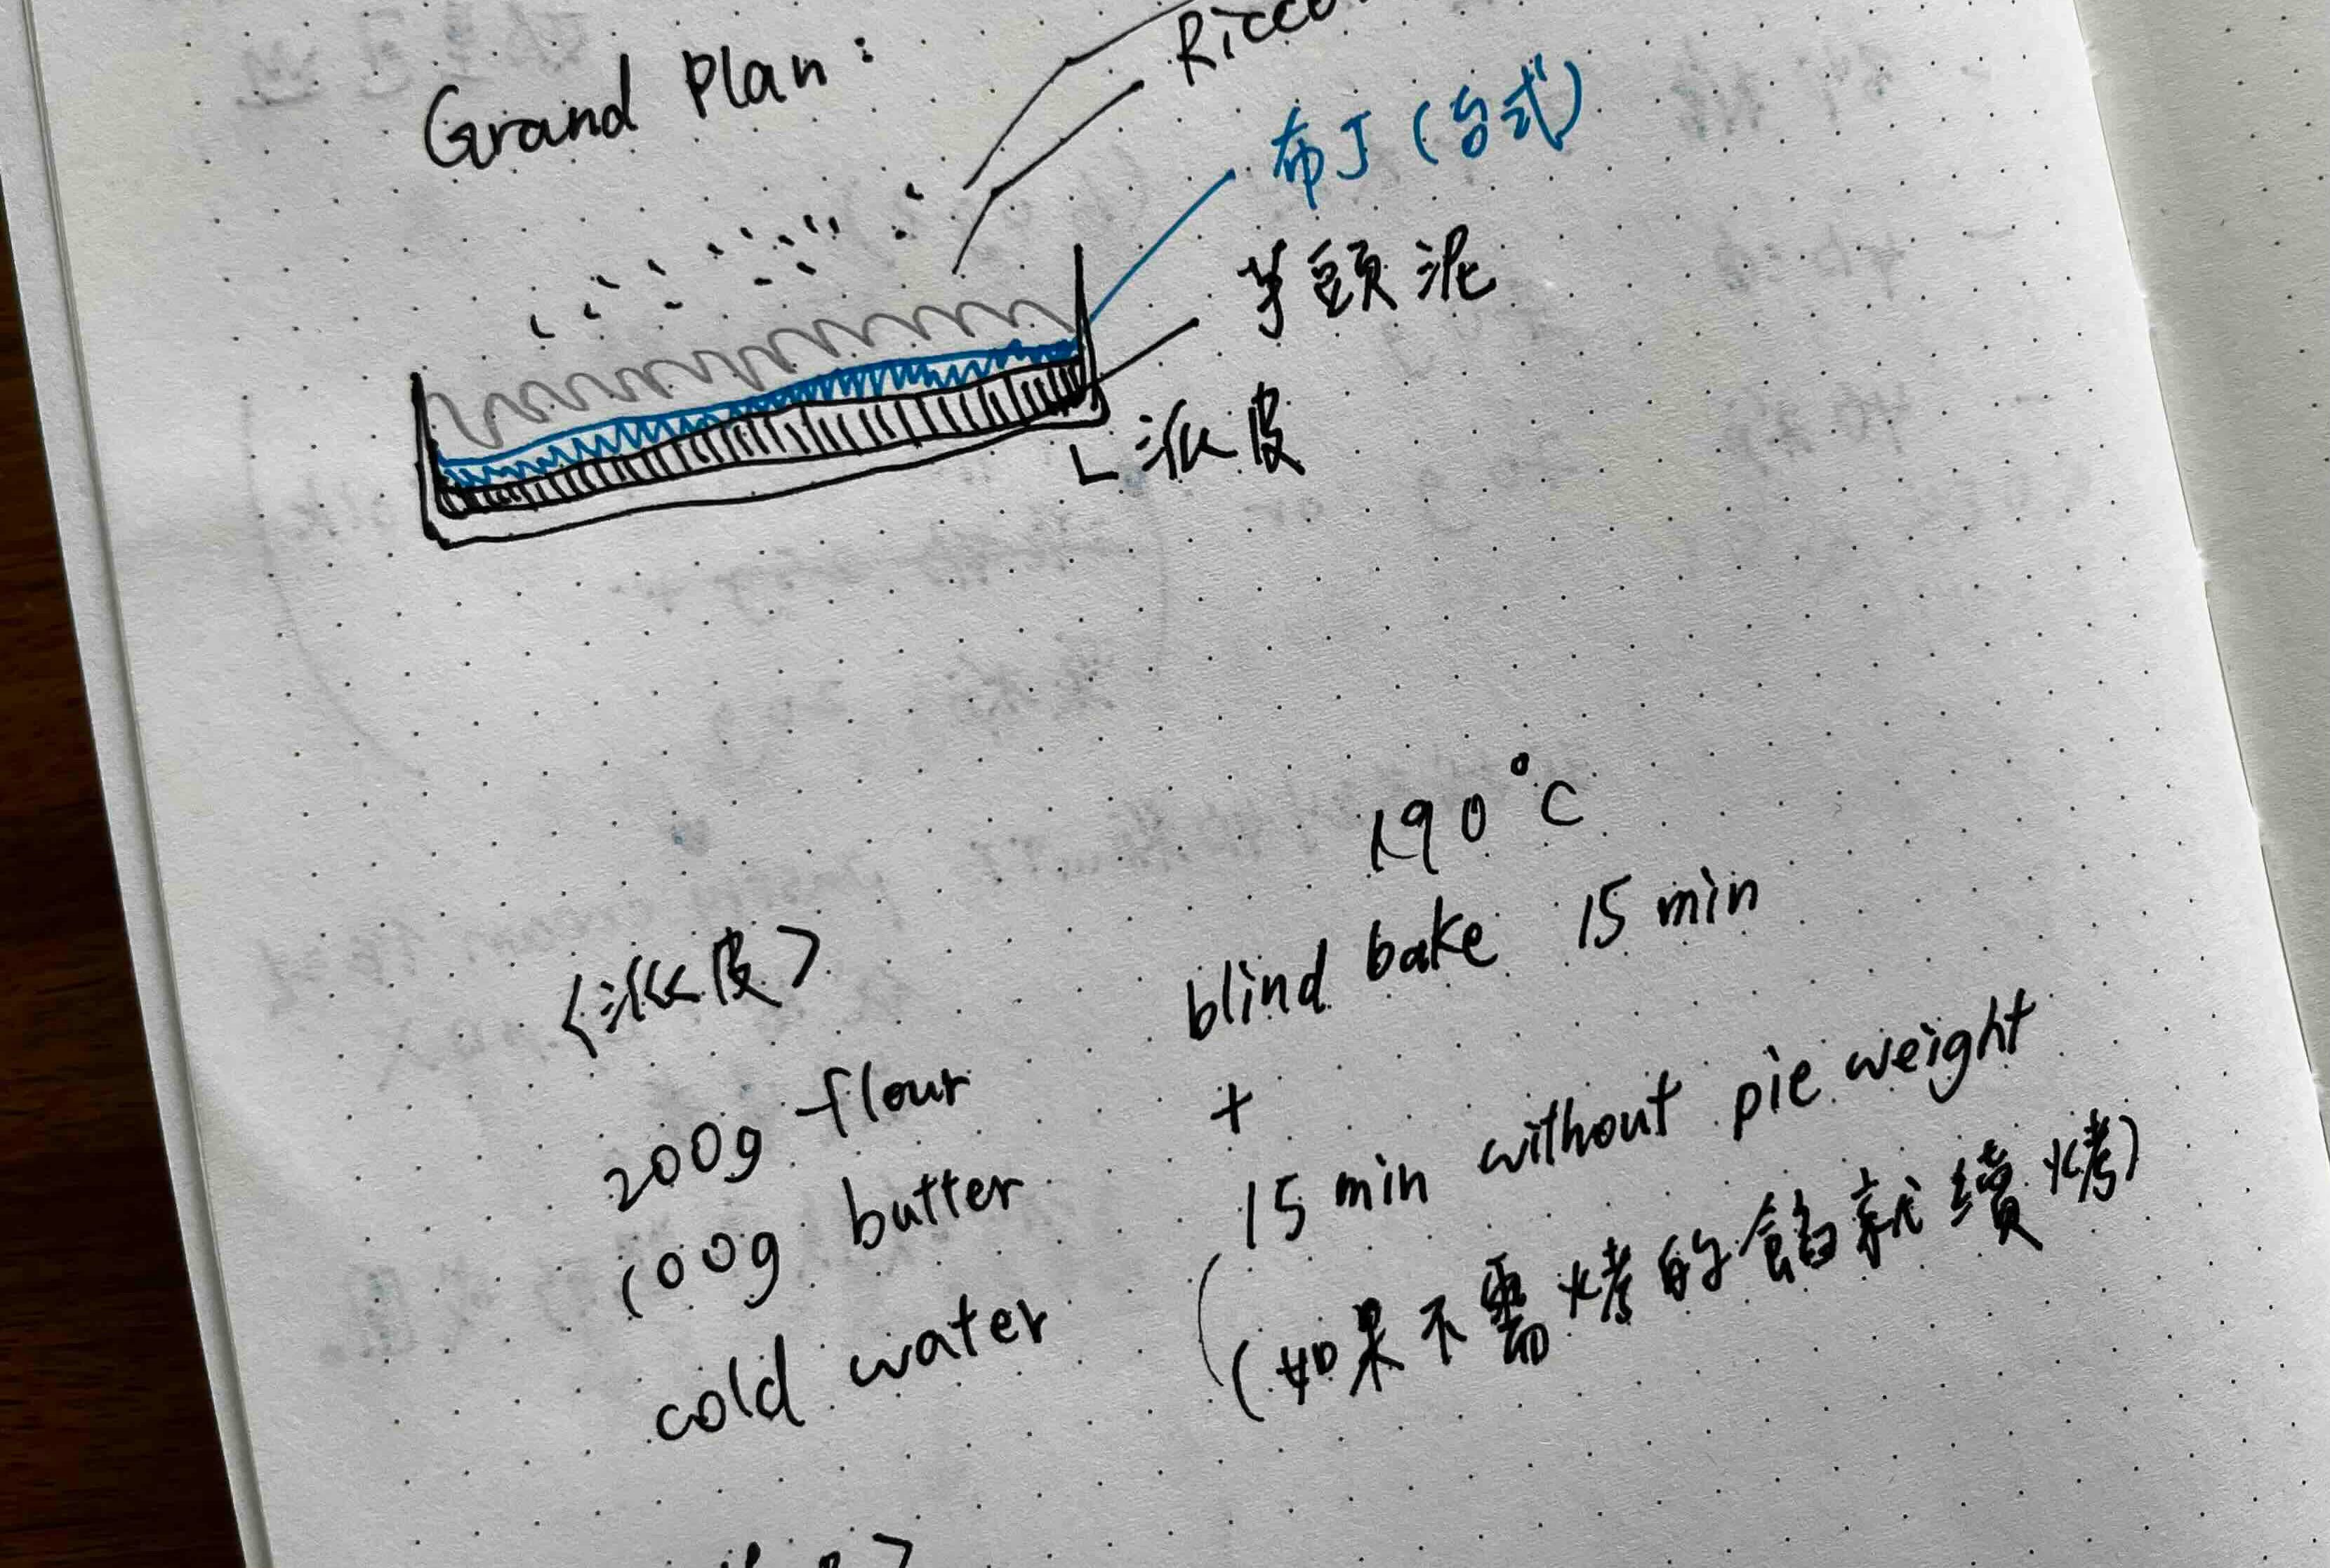 Grand Plan:
布丁(台式)
芋頭泥
派皮
190°C
<派皮>
blind bake 15 min
200g flour
+
100g butter
15 min without pie weight
cold water
(如果不需烤的餡就續烤)